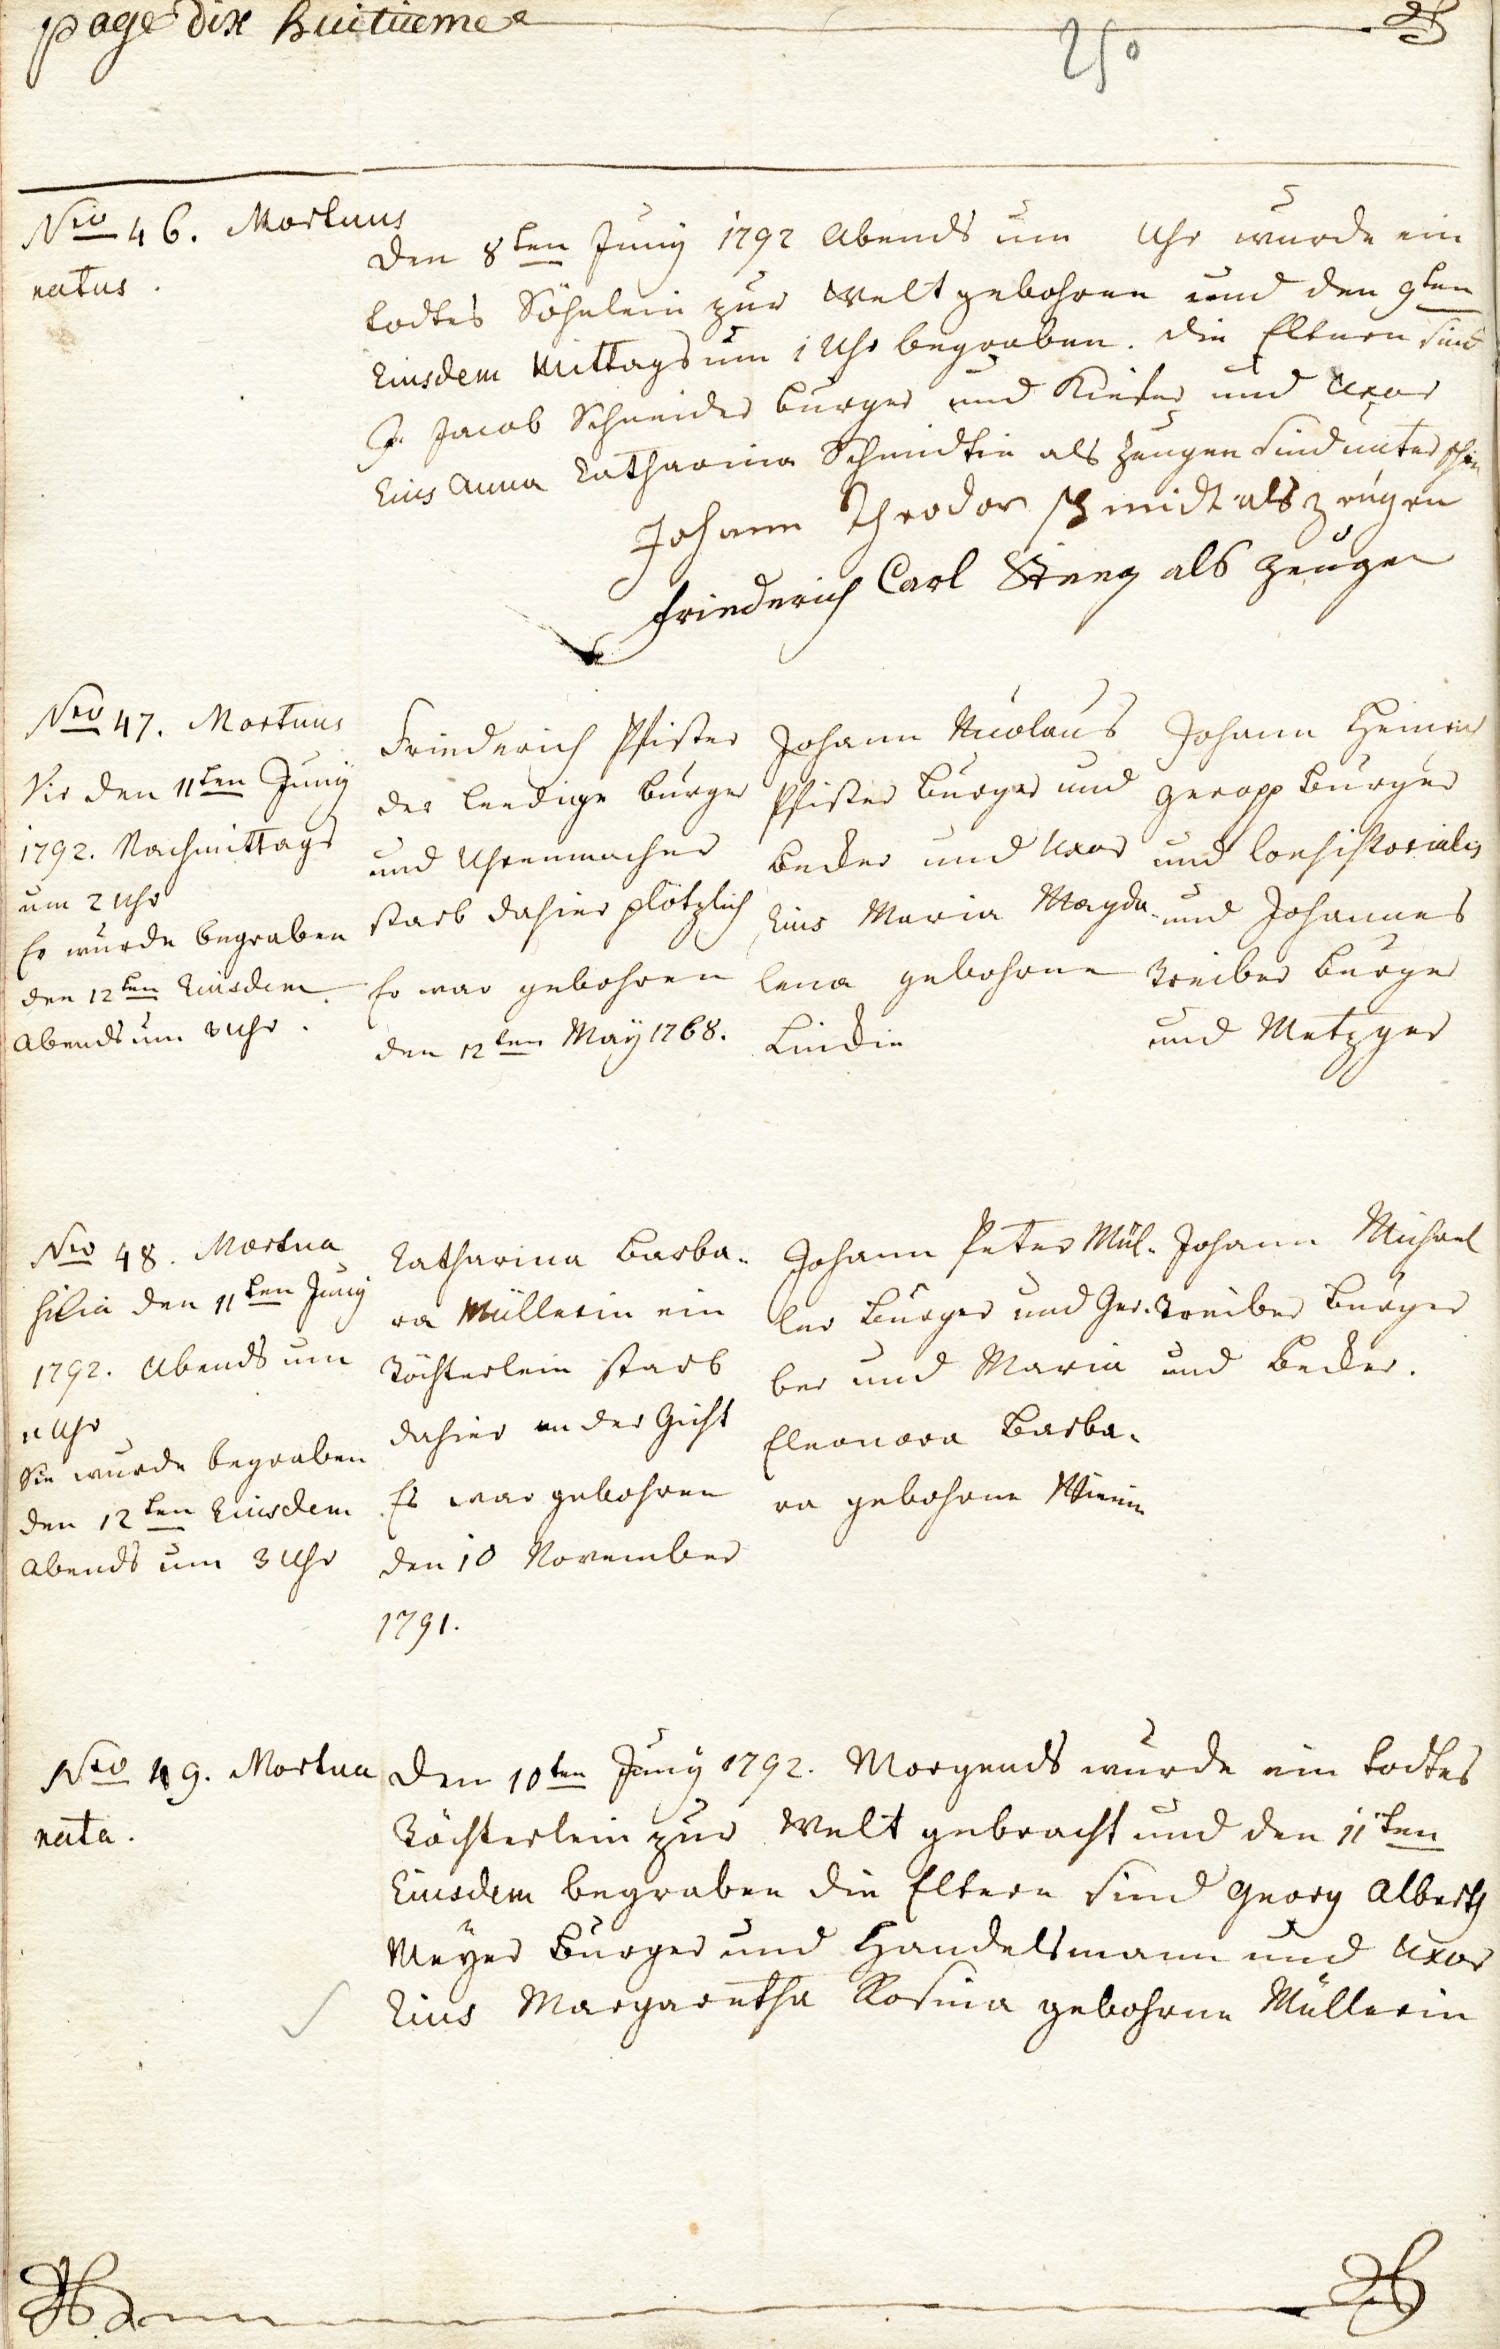 page dix huitieme
250
Nro 46. Mortuus
natus.
Den 8ten Juny 1792 Abends um Uhr wurde ein
todtes Söhnlein zur Welt gebohren und den 9ten
Eiusdem Mittags um 1 Uhr begraben. Die Eltern sind
J. Jacob Schneider Burger und Kiefer und Uxor
Eius Anna Catharina Schmidtin als Zeugen sind unterschr
Johann Theodor Schmidt als zeugen
Friederich Carl Steeg als Zeuge
Nro 47. Mortuus
Vir den 11ten Juny
1792. Nachmittags
um 2 Uhr
Er wurde begraben
den 12ten Eiusdem
Abends um 3 Uhr.
Friederich Pfister
der leedige Burger
und Uhrenmacher
starb dahier plötzlich
Er war gebohren
den 12ten May 1768.
Johann Nicolaus
Pfister Burger und
Becker und Uxor
Eius Maria Magda-
lena gebohrne
Linckin
Johann Heinrich
Geropp Burger
und Consistorialis
und Johannes
Treiber Burger
und Metzger
Nro 48. Mortua
filia den 11ten Juny
1792. Abends um
11 Uhr
Sie wurde begraben
den 12ten Eiusdem
Abends um 3 Uhr
Catharina Barba-
ra Müllerin ein
Töchterlein starb
dahier an der Gicht
Es war gebohren
den 10 November
1791.
Johann Peter Mül-
ler Burger und Ger-
ber und Maria
Eleonora Barba-
ra gebohrne
Johann Michael
Treiber Burger
und Becker.
Nro 49. Mortua
nata.
Den 10ten Juny 1792. Morgends wurde ein todtes
Töchterlein zur Welt gebracht und den 11ten
Eiusdem begraben die Eltern sind Georg Alberth
Meyer Burger und Handelsmann und Uxor
Eius Margaretha Rosina gebohrne Müllerin